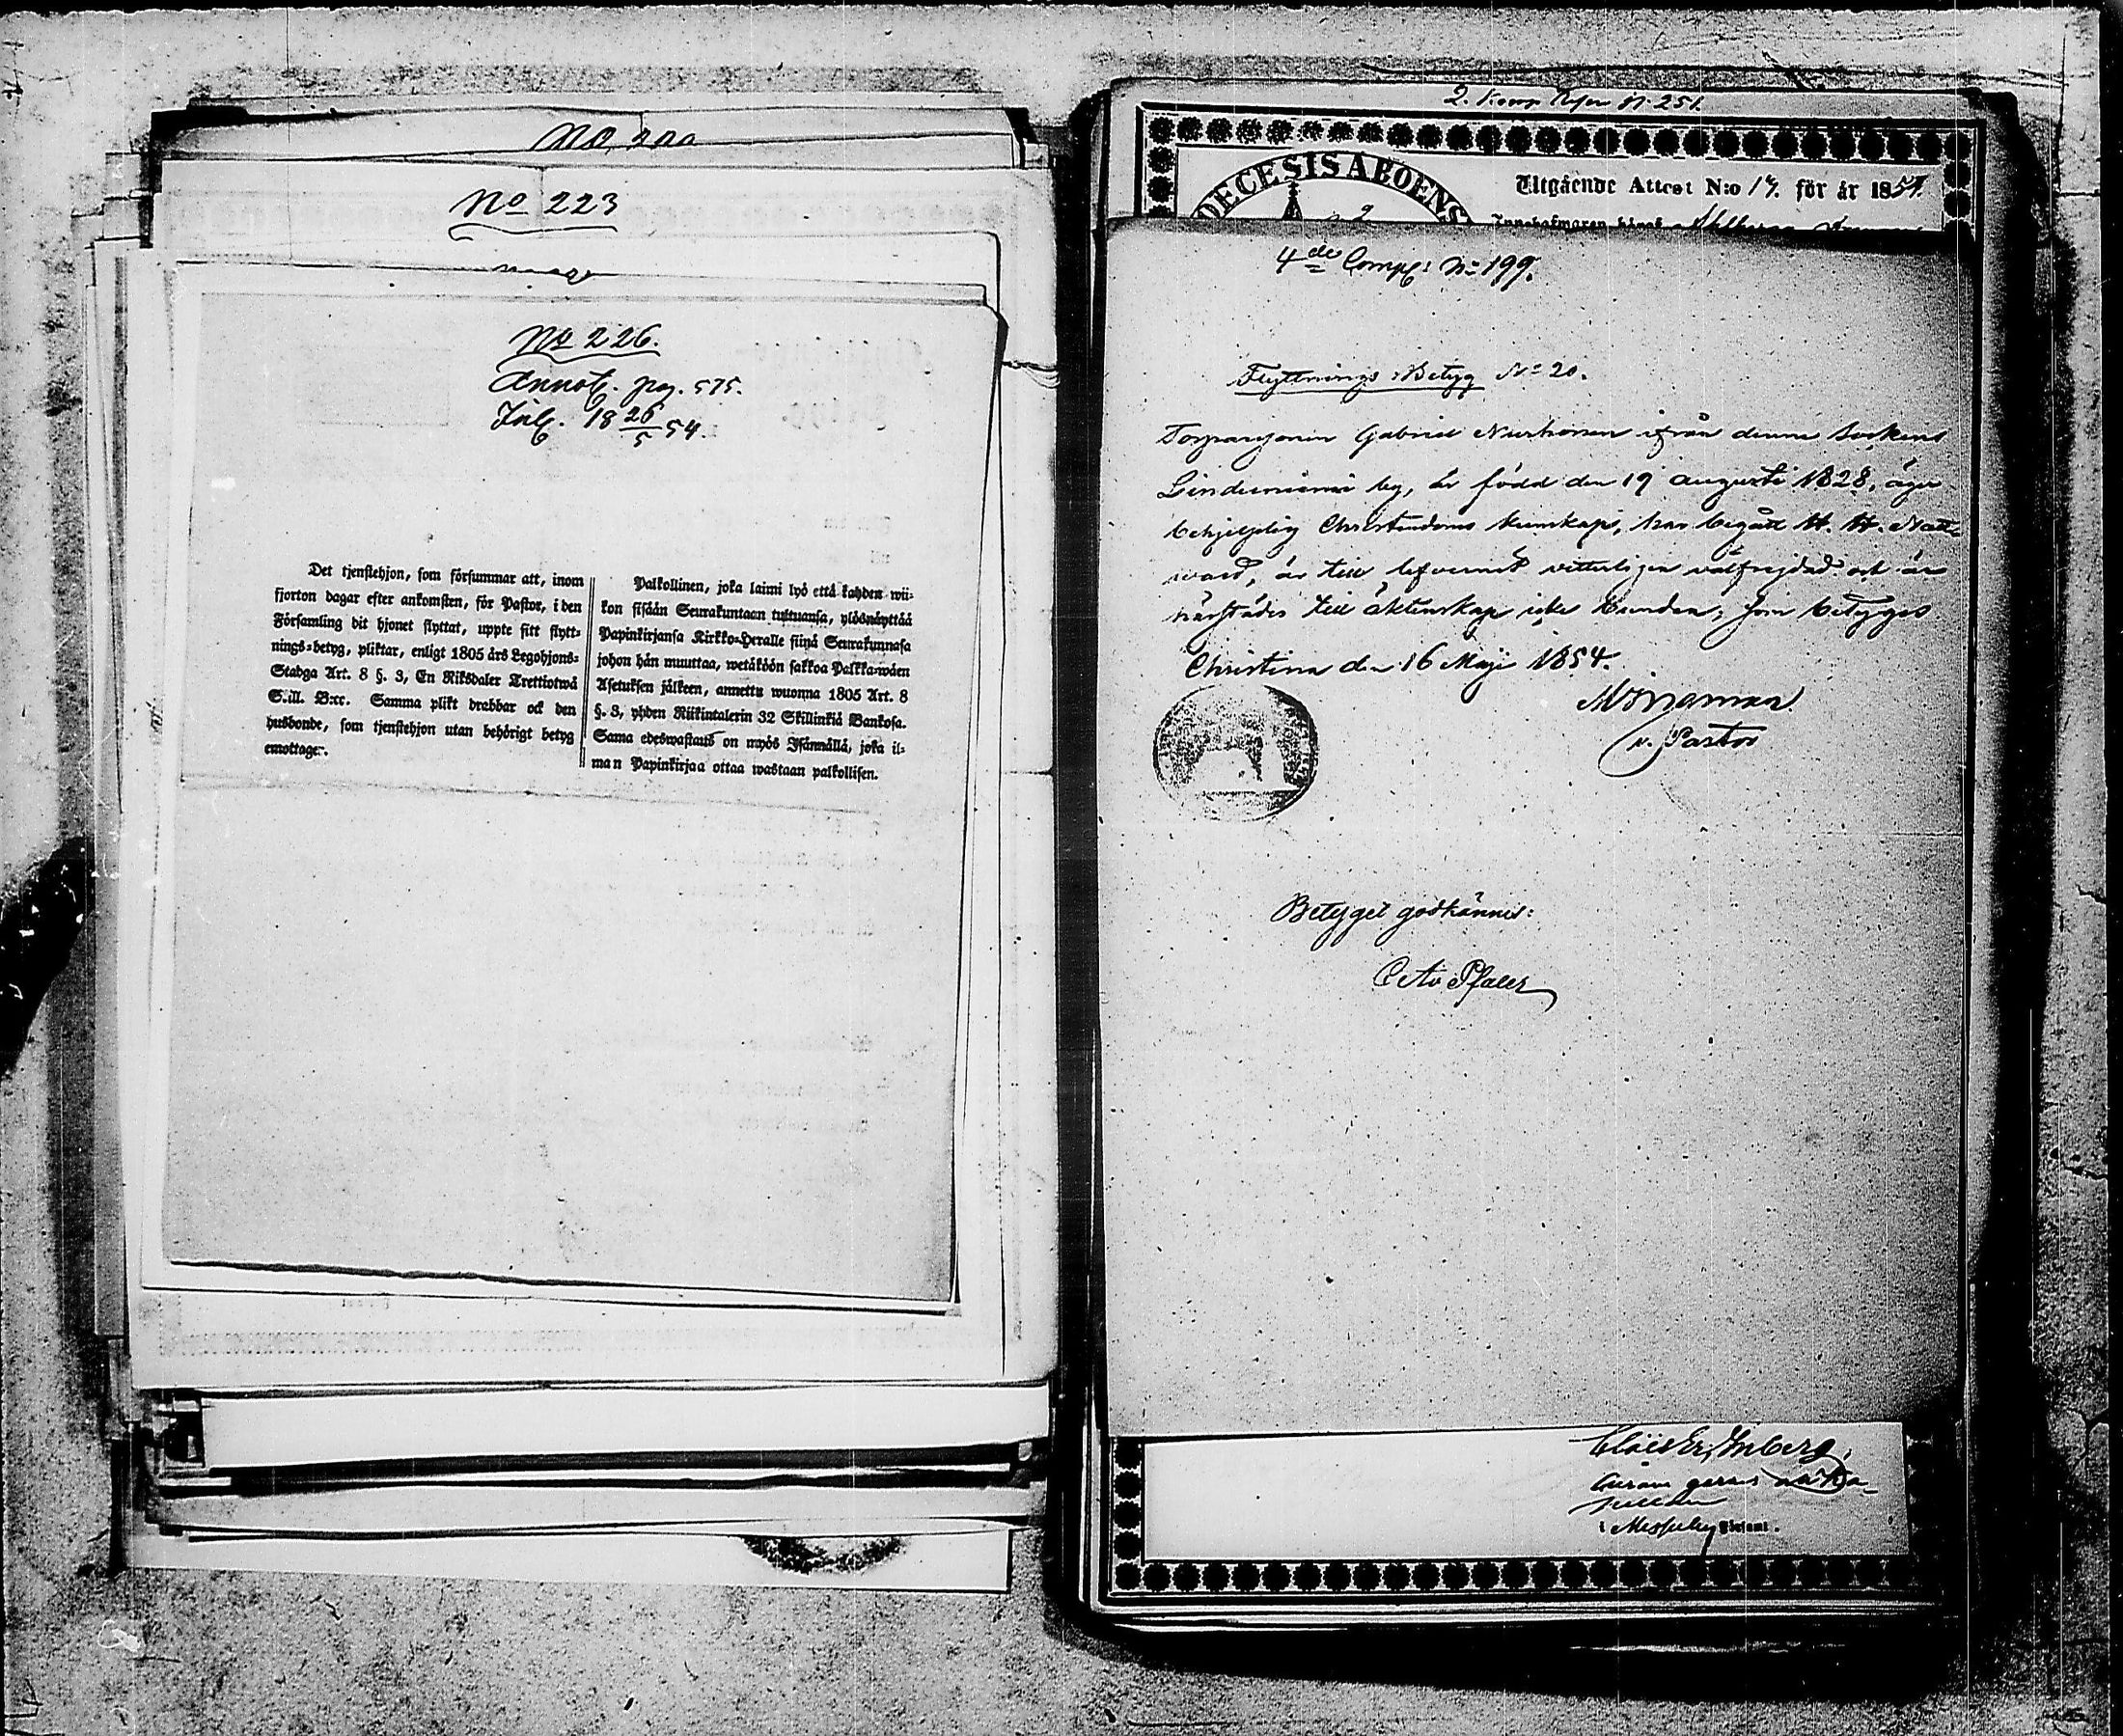 No 223
No 226.
Annot. pag. 575.
Inl. 18 26/5 54.
Det tjenstehjon, som försummar att, inom
fjorton dagar efter ankomsten, för Pastor, i den
Församling dit hjonet flyttat, uppte sitt flytt-
nings-betyg, pliktar, enligt 1805 års Legohjons-
Stadga Art. 8 §. 3, En Riksdaler Trettiotwå
Skill. B:co. Samma plikt drabbar ock den
husbonde, som tjenstehjon utan behörigt betyg
emottager.
Palkollinen, joka laimi lyö että kahden wii-
kon sisään Seurakuntaan tultuansa, ylösnäyttää
Papinkirjansa Kirkko-Herralle siinä Seurakunnasa
johon hän muuttaa, wetäköön sakkoa Palkka-wäen
Asetuksen jälkeen, annettu wuonna 1805 Art. 8
§. 3, yhden Riikintalerin 32 Skillinkiä Bankosa.
Sama edeswastaus on myös Isännällä, joka il-
man Papinkirjaa ottaa wastaan palkollisen.
2. Komp N 251.
DECESIS ABOENS
Utgående Attest N:o 17. för år 1854.
Innehafwaren häraf
4de Comp: No 199.
Flyttnings Betyg No 20.
Torparesonen Gabriel ifrån denne Sockens
by, är född den 19 Augusti 1828, äger
behjelplig Christendoms kunskap, har begått H. H. Natt-
ward, är till lefvernet vitterligen välfrejdad och är
härstädes till äktenskap icke bunden; som betygas.
Christina den 16 Maji 1854.
v. Pastor
Betyget godkännes:
Pfaler
Inberg
i Messuby